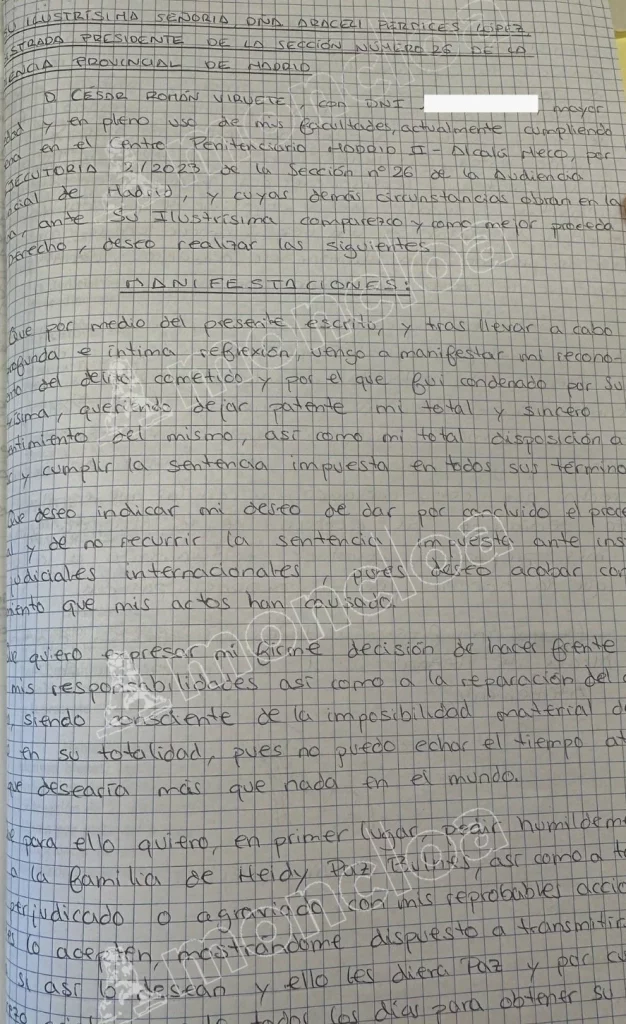 ILUSTRÍSIMA SEÑORIA DÑA ARACELI PERDICES LÓPEZ
STRADA PRESIDENTE DE LA SECCIÓN NÚMERO 26 DE LA
ENCIA PROVINCIAL DE MADRID
D CÉSAR ROMÁN VIRUETE, con DNI mayor
dad y en pleno uso de mis facultades, actualmente cumpliendo
en el Centro Penitenciario MADRID II - Alcalá Meco, por
JECUTORIA 2/2023 de la Sección nº 26 de la Audiencia
cial de Madrid, y cuyas demás circunstancias obran en la
ante Su Ilustrísima comparezco y como mejor proceda
Derecho, deseo realizar las siguientes
MANIFESTACIONES:
Que por medio del presente escrito, y tras llevar a cabo
rofunda e íntima reflexión, vengo a manifestar mi recono-
del delito cometido y por el que fui condenado por Su
ísima, queriendo dejar patente mi total y sincero
ntimiento del mismo, así como mi total disposición a
y cumplir la sentencia impuesta en todos sus término
Que deseo indicar mi deseo de dar por concluido el proce
l y de no recurrir la sentencia impuesta ante ins
judiciales internacionales, pues deseo acabar con
iento que mis actos han causado.
ue quiero expresar mi firme decisión de hacer frente
mis responsabilidades así como a la reparación del
, siendo consciente de la imposibilidad material d
en su totalidad, pues no puedo echar el tiempo at
ue desearía más que nada en el mundo.
e para ello quiero, en primer lugar, pedir humildem
a la familia de Heidy Paz Bulnes, así como a t
erjudicado o agraviado con mis reprobables accio
lo acepten, mostrándome dispuesto a transmitir
si así lo desean y ello les diera Paz y por cu
todos los días para obtener su
moncloa
moncloa
moncloa
moncloa